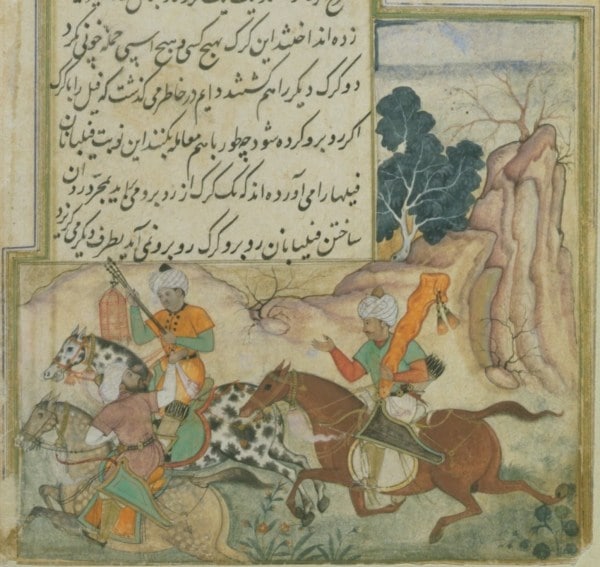 زده انداختند این کرک بهیچ کسی و هیچ اسپی حمله خوبی نکرد
دو کرک دیکر را هم کشتند دایم در خاطر می کذشت که فیل را با کرک
اکر روبرو کرده شود چه طور با هم معامله بکنند این نوبت فیلبانان
فیلها را می آورده اند که یک کرک از روبرو می اید بمجرد روان
ساختن فیلبانان روبرو کرک روبرو نمی آید بطرف دیکر می کریزد